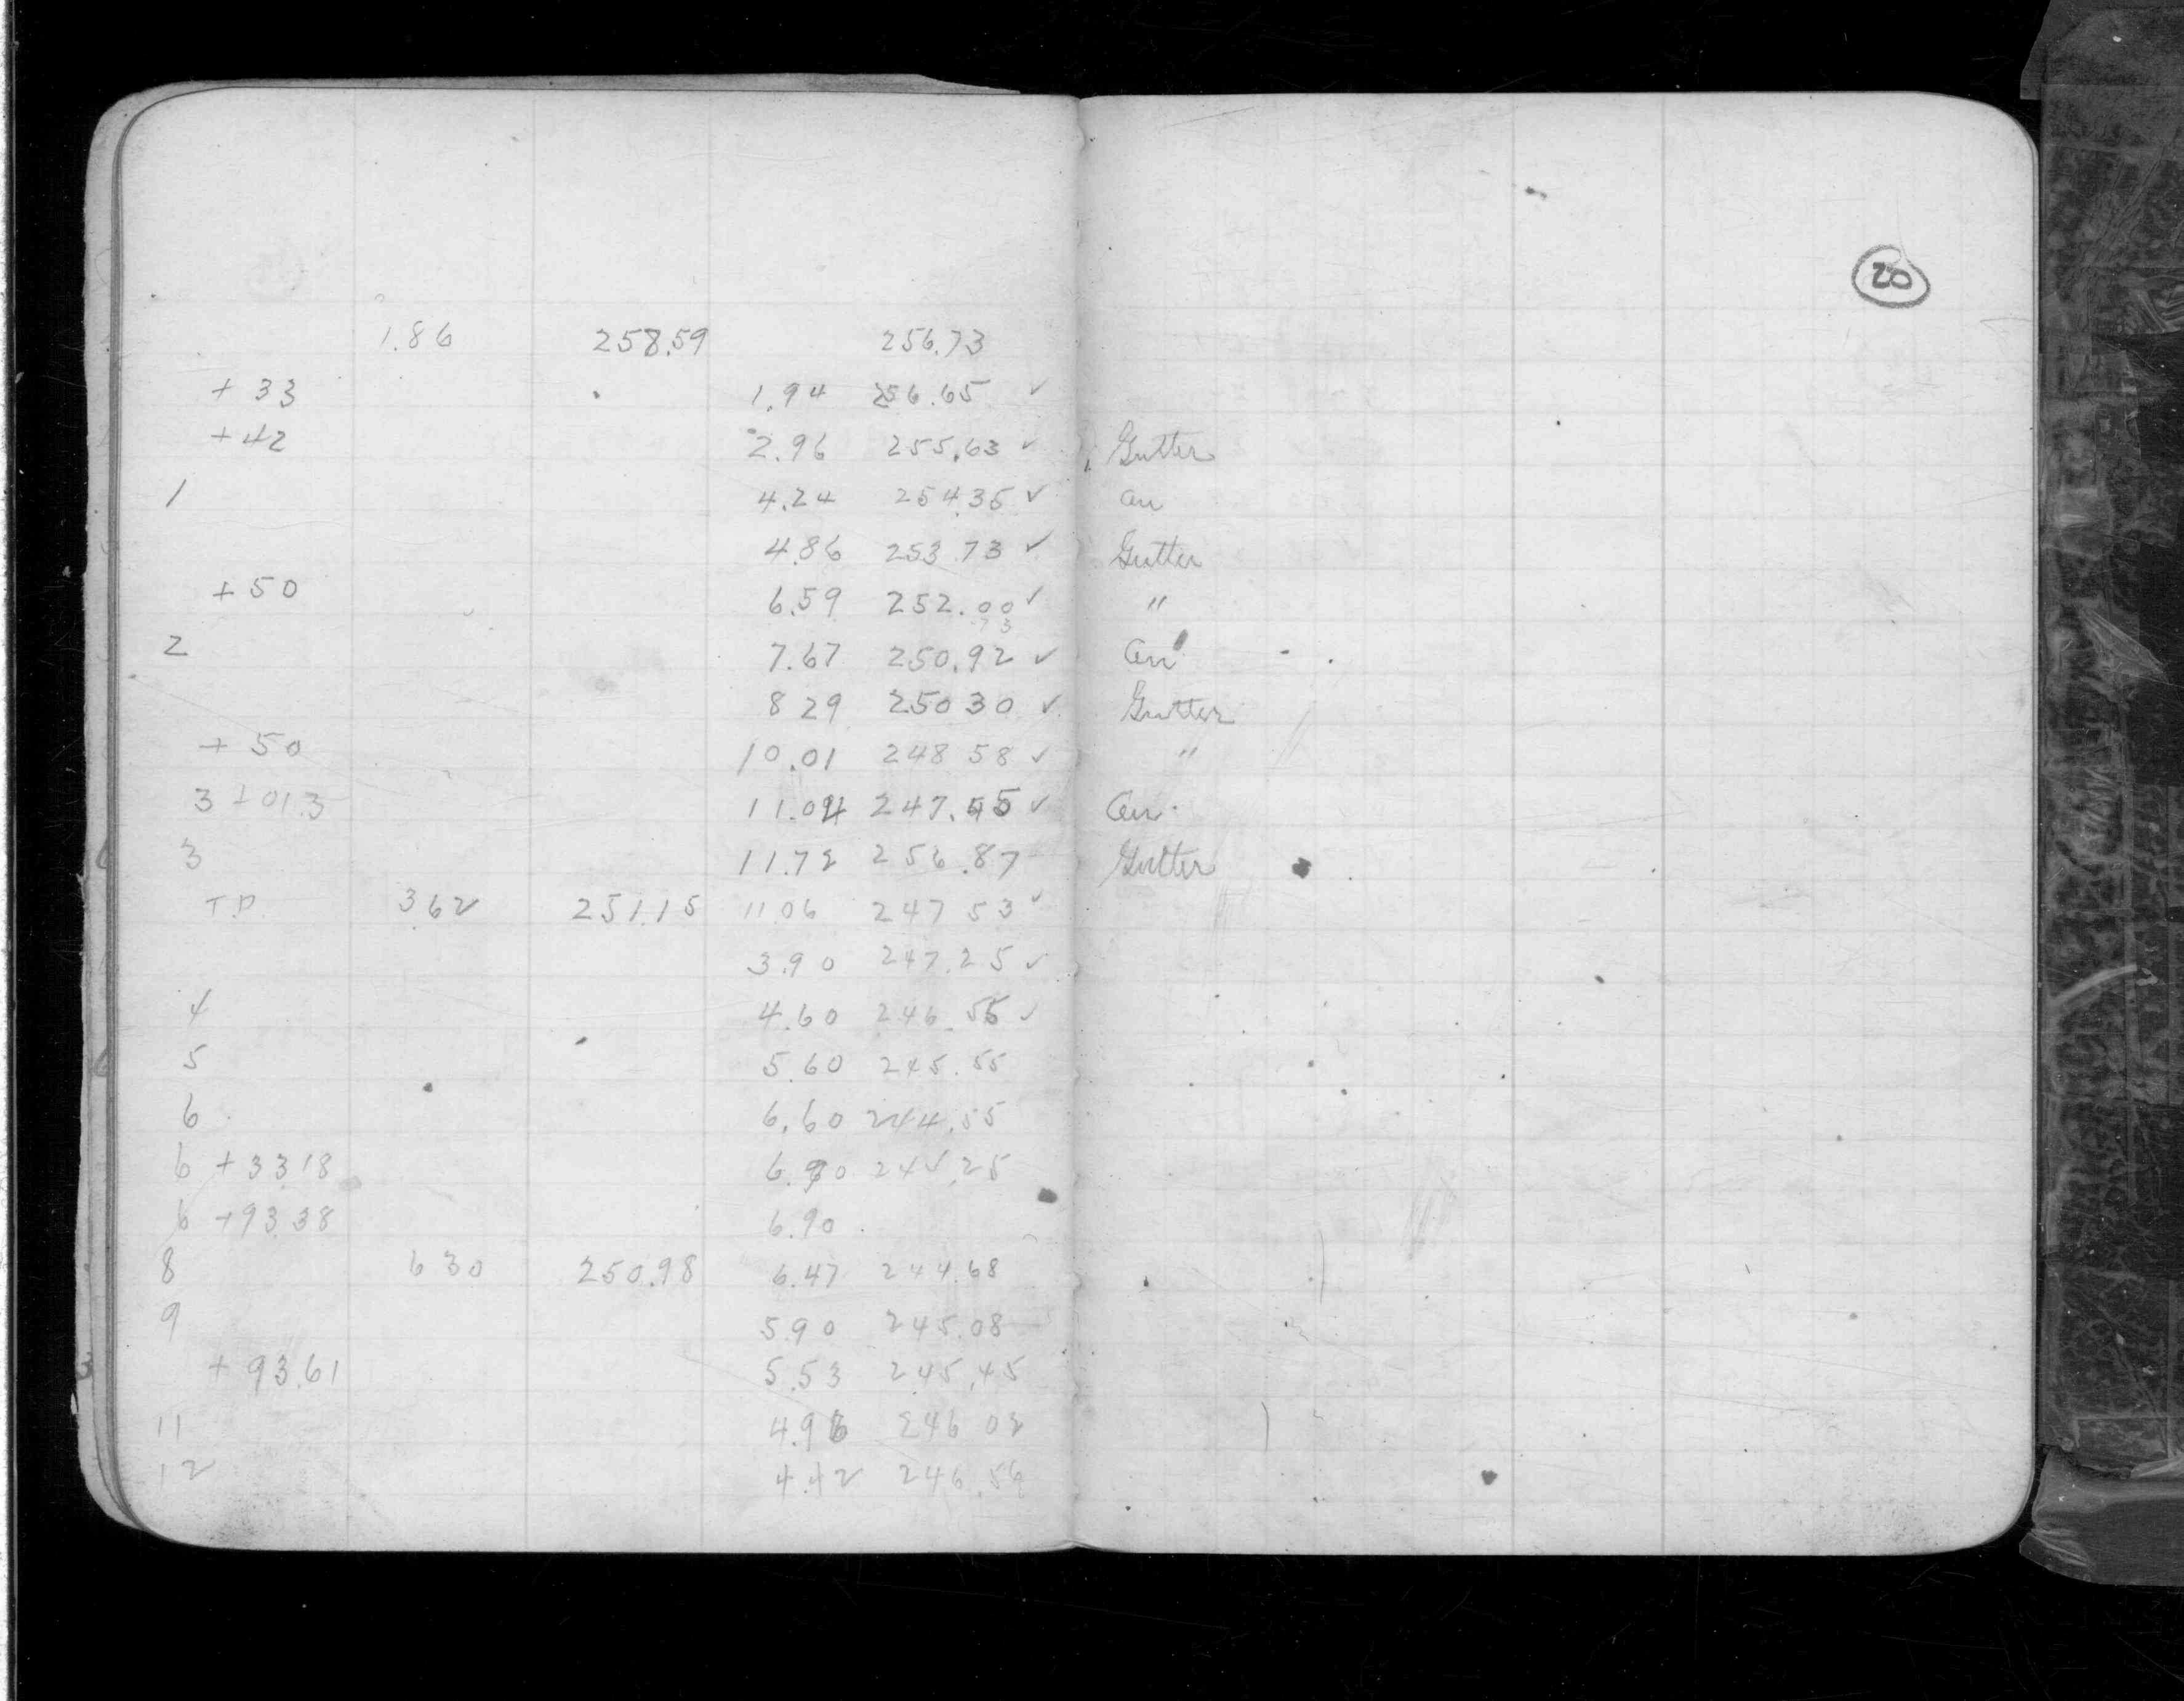 20
1.86 258.59 256.73
+ 33 1.94 256.65 ✓
+42 2.96 255.63 ✓ Gutter
1 4.24 254.35 ✓ Cen
4.86 253.73 ✓ Gutter
+ 50 6.59 252.00 ✓ "
73
2 7.67 250.92 ✓ Cen
8 29 250 30 ✓ Gutter
+ 50 10.01 248 58 ✓ "
3 + 01.3 11.04 247.55 ✓ Cen
3 11.72 256.87 Gutter
T.P. 3.62 251.15 11 06 247 53 ✓
3.90 247.25 ✓
4 4.60 246.55 ✓
5 5.60 245.55
6 6.60 244.55
6 + 33.18 6.90 244.25
6 +93.38 6.90
8 6 30 250.98 6.47 244.68
9 5.90 245.08
+ 93.61 5.53 245.45
11 4.96 246 02
12 4.42 246.56